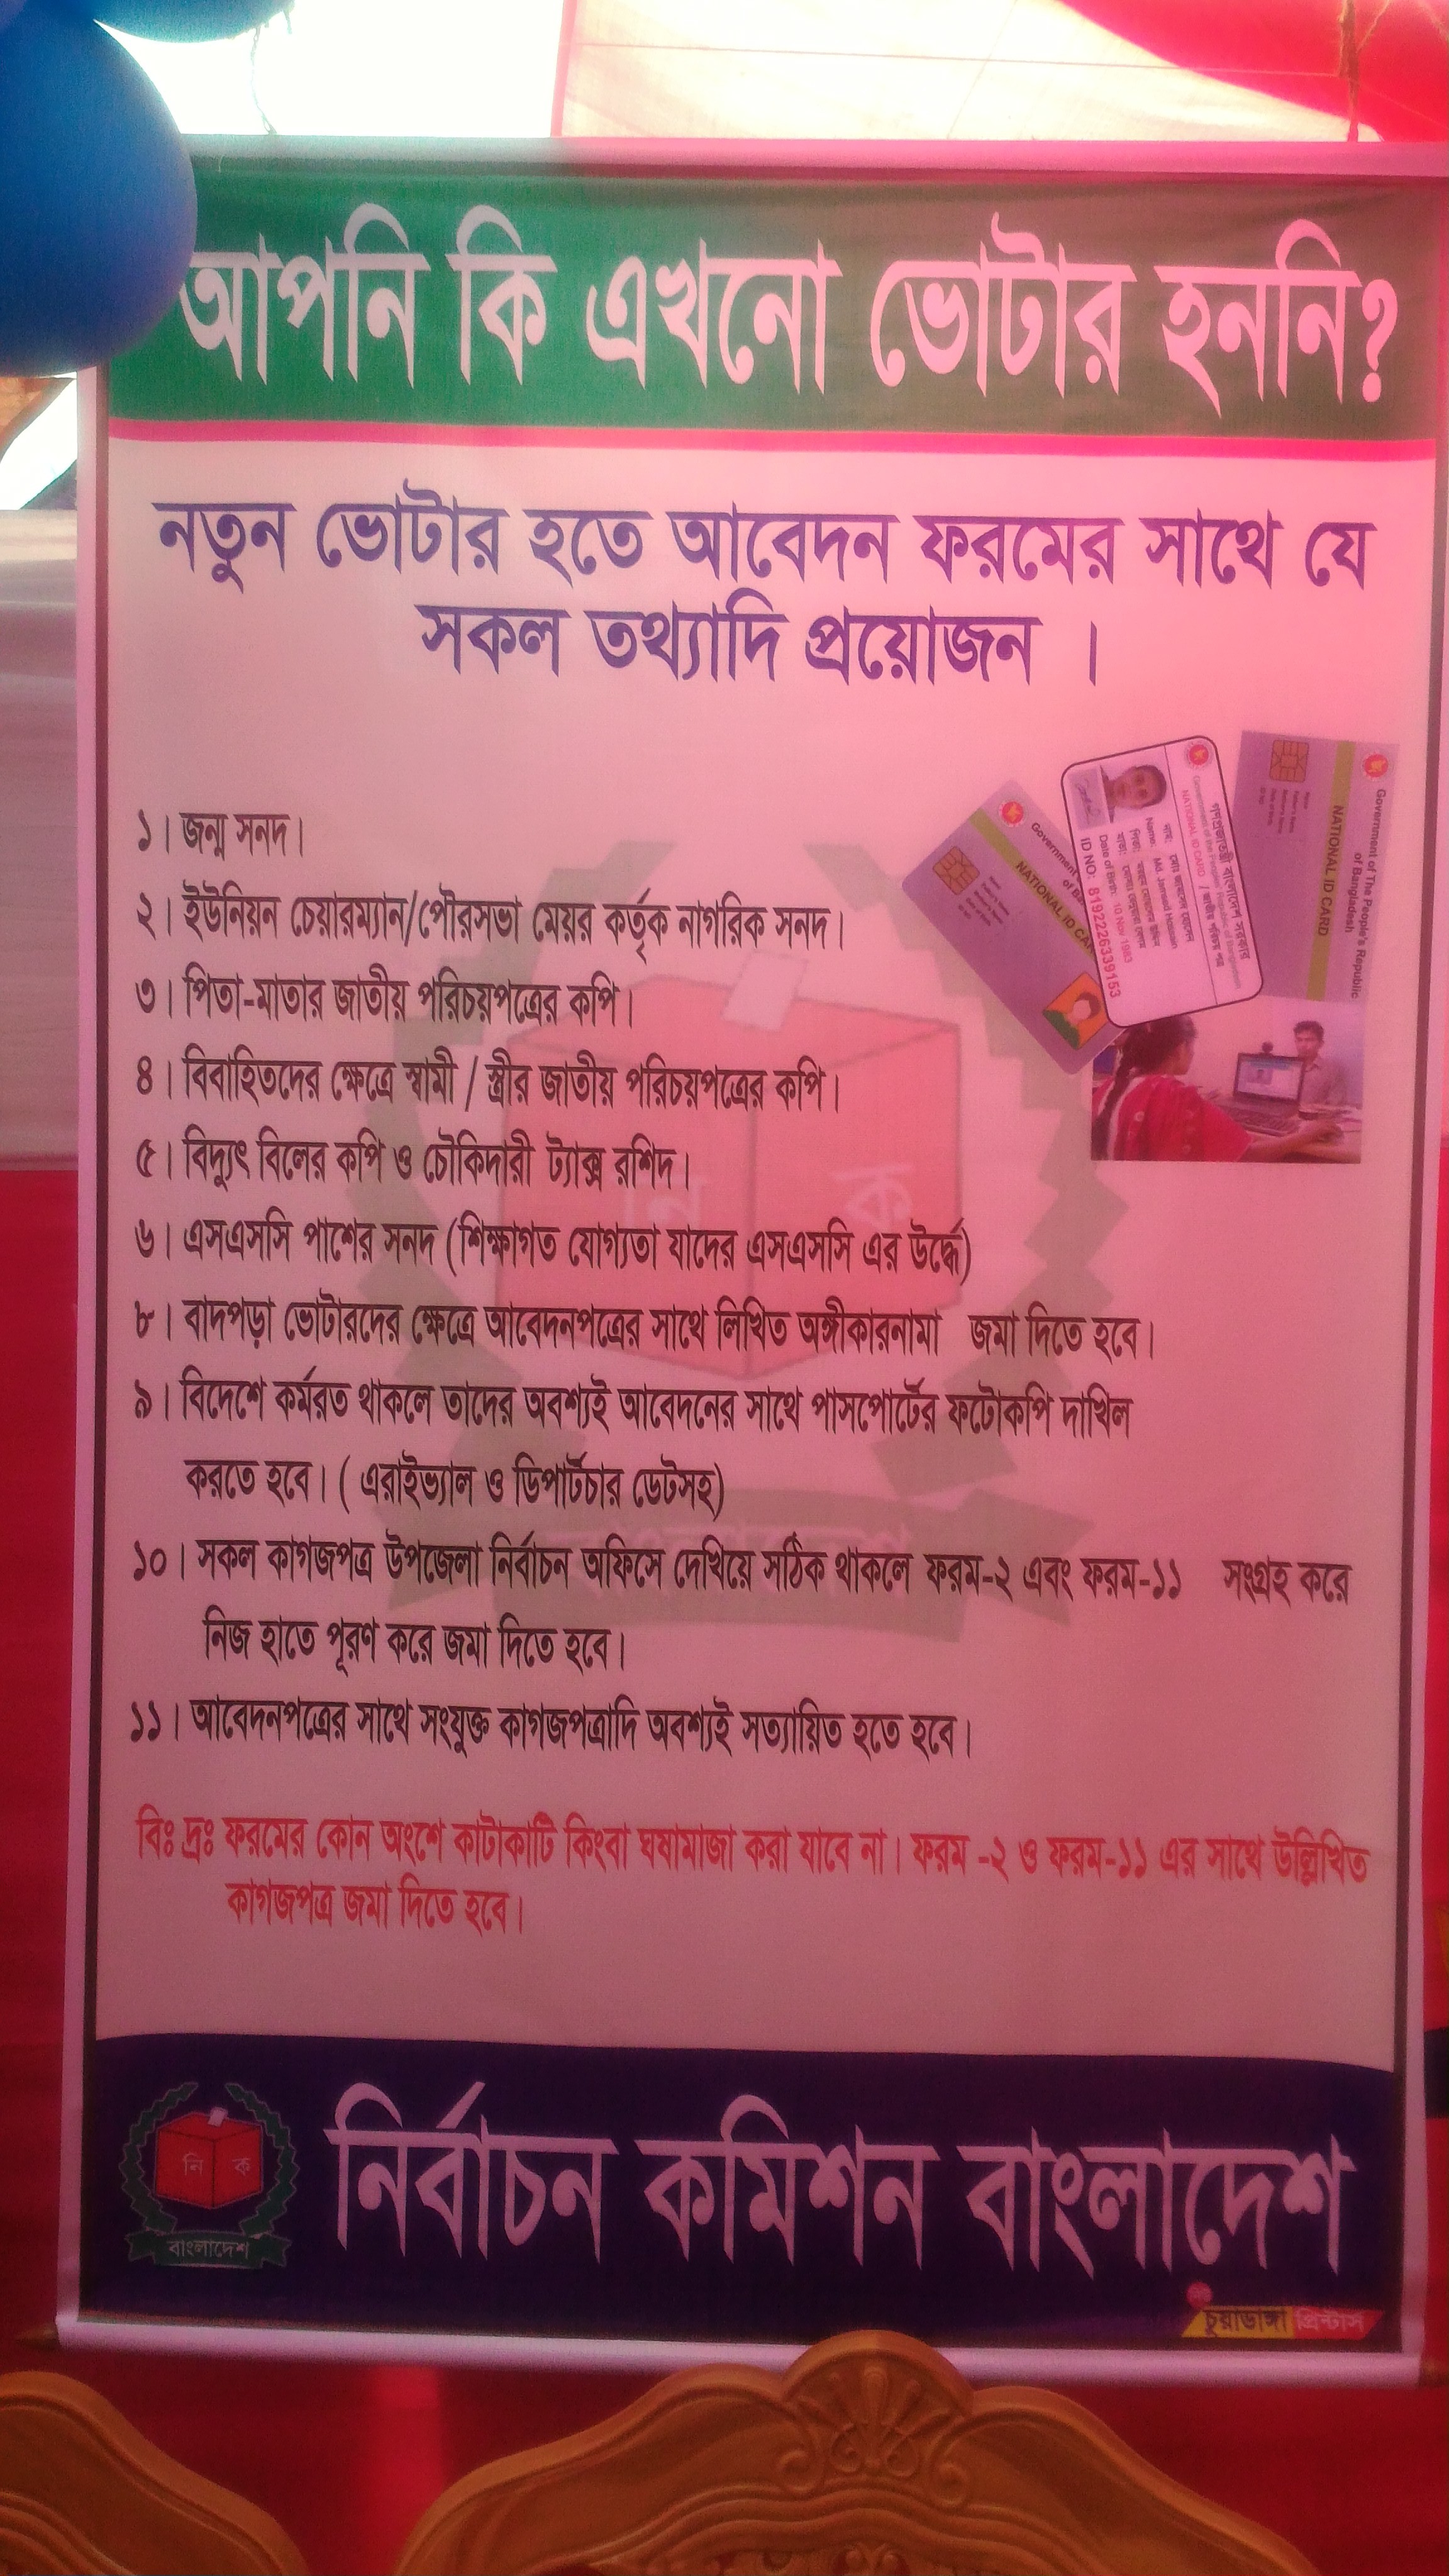 আপনি কি এখনো ভোটার হননি?
নতুন ভোটার হতে আবেদন ফরমের সাথে যে
সকল তথ্যাদি প্রয়োজন ।
১। জন্ম সনদ।
২। ইউনিয়ন চেয়ারম্যান/পৌরসভা মেয়র কর্তৃক নাগরিক সনদ।
৩। পিতা-মাতার জাতীয় পরিচয়পত্রের কপি।
৪। বিবাহিতদের ক্ষেত্রে স্বামী / স্ত্রীর জাতীয় পরিচয়পত্রের কপি।
৫। বিদ্যুৎ বিলের কপি ও চৌকিদারী ট্যাক্স রশিদ।
৬। এসএসসি পাশের সনদ (শিক্ষাগত যোগ্যতা যাদের এসএসসি এর উর্দ্ধে)
৮। বাদপড়া ভোটারদের ক্ষেত্রে আবেদনপত্রের সাথে লিখিত অঙ্গীকারনামা জমা দিতে হবে।
৯। বিদেশে কর্মরত থাকলে তাদের অবশ্যই আবেদনের সাথে পাসপোর্টের ফটোকপি দাখিল
করতে হবে। ( এরাইভ্যাল ও ডিপার্টচার ডেটসহ)
১০। সকল কাগজপত্র উপজেলা নির্বাচন অফিসে দেখিয়ে সঠিক থাকলে ফরম-২ এবং ফরম-১১ সংগ্রহ করে
নিজ হাতে পূরণ করে জমা দিতে হবে।
১১। আবেদনপত্রের সাথে সংযুক্ত কাগজপত্রাদি অবশ্যই সত্যায়িত হতে হবে।
বিঃ দ্রঃ ফরমের কোন অংশে কাটাকাটি কিংবা ঘষামাজা করা যাবে না। ফরম -২ ও ফরম-১১ এর সাথে উল্লিখিত
কাগজপত্র জমা দিতে হবে।
Government of The People's Republic
of Bangladesh
NATIONAL ID CARD
গণপ্রজাতন্ত্রী বাংলাদেশ সরকার
NATIONAL ID CARD / জাতীয় পরিচয় পত্র
Name: Md.
Date of Birth: 10 Nov 1983
ID NO: 8192226339153
Government
of B
NATIONAL ID CA
নি ক
নি ক
বাংলাদেশ
নির্বাচন কমিশন বাংলাদেশ
চুয়াডাঙ্গা প্রিন্টার্স